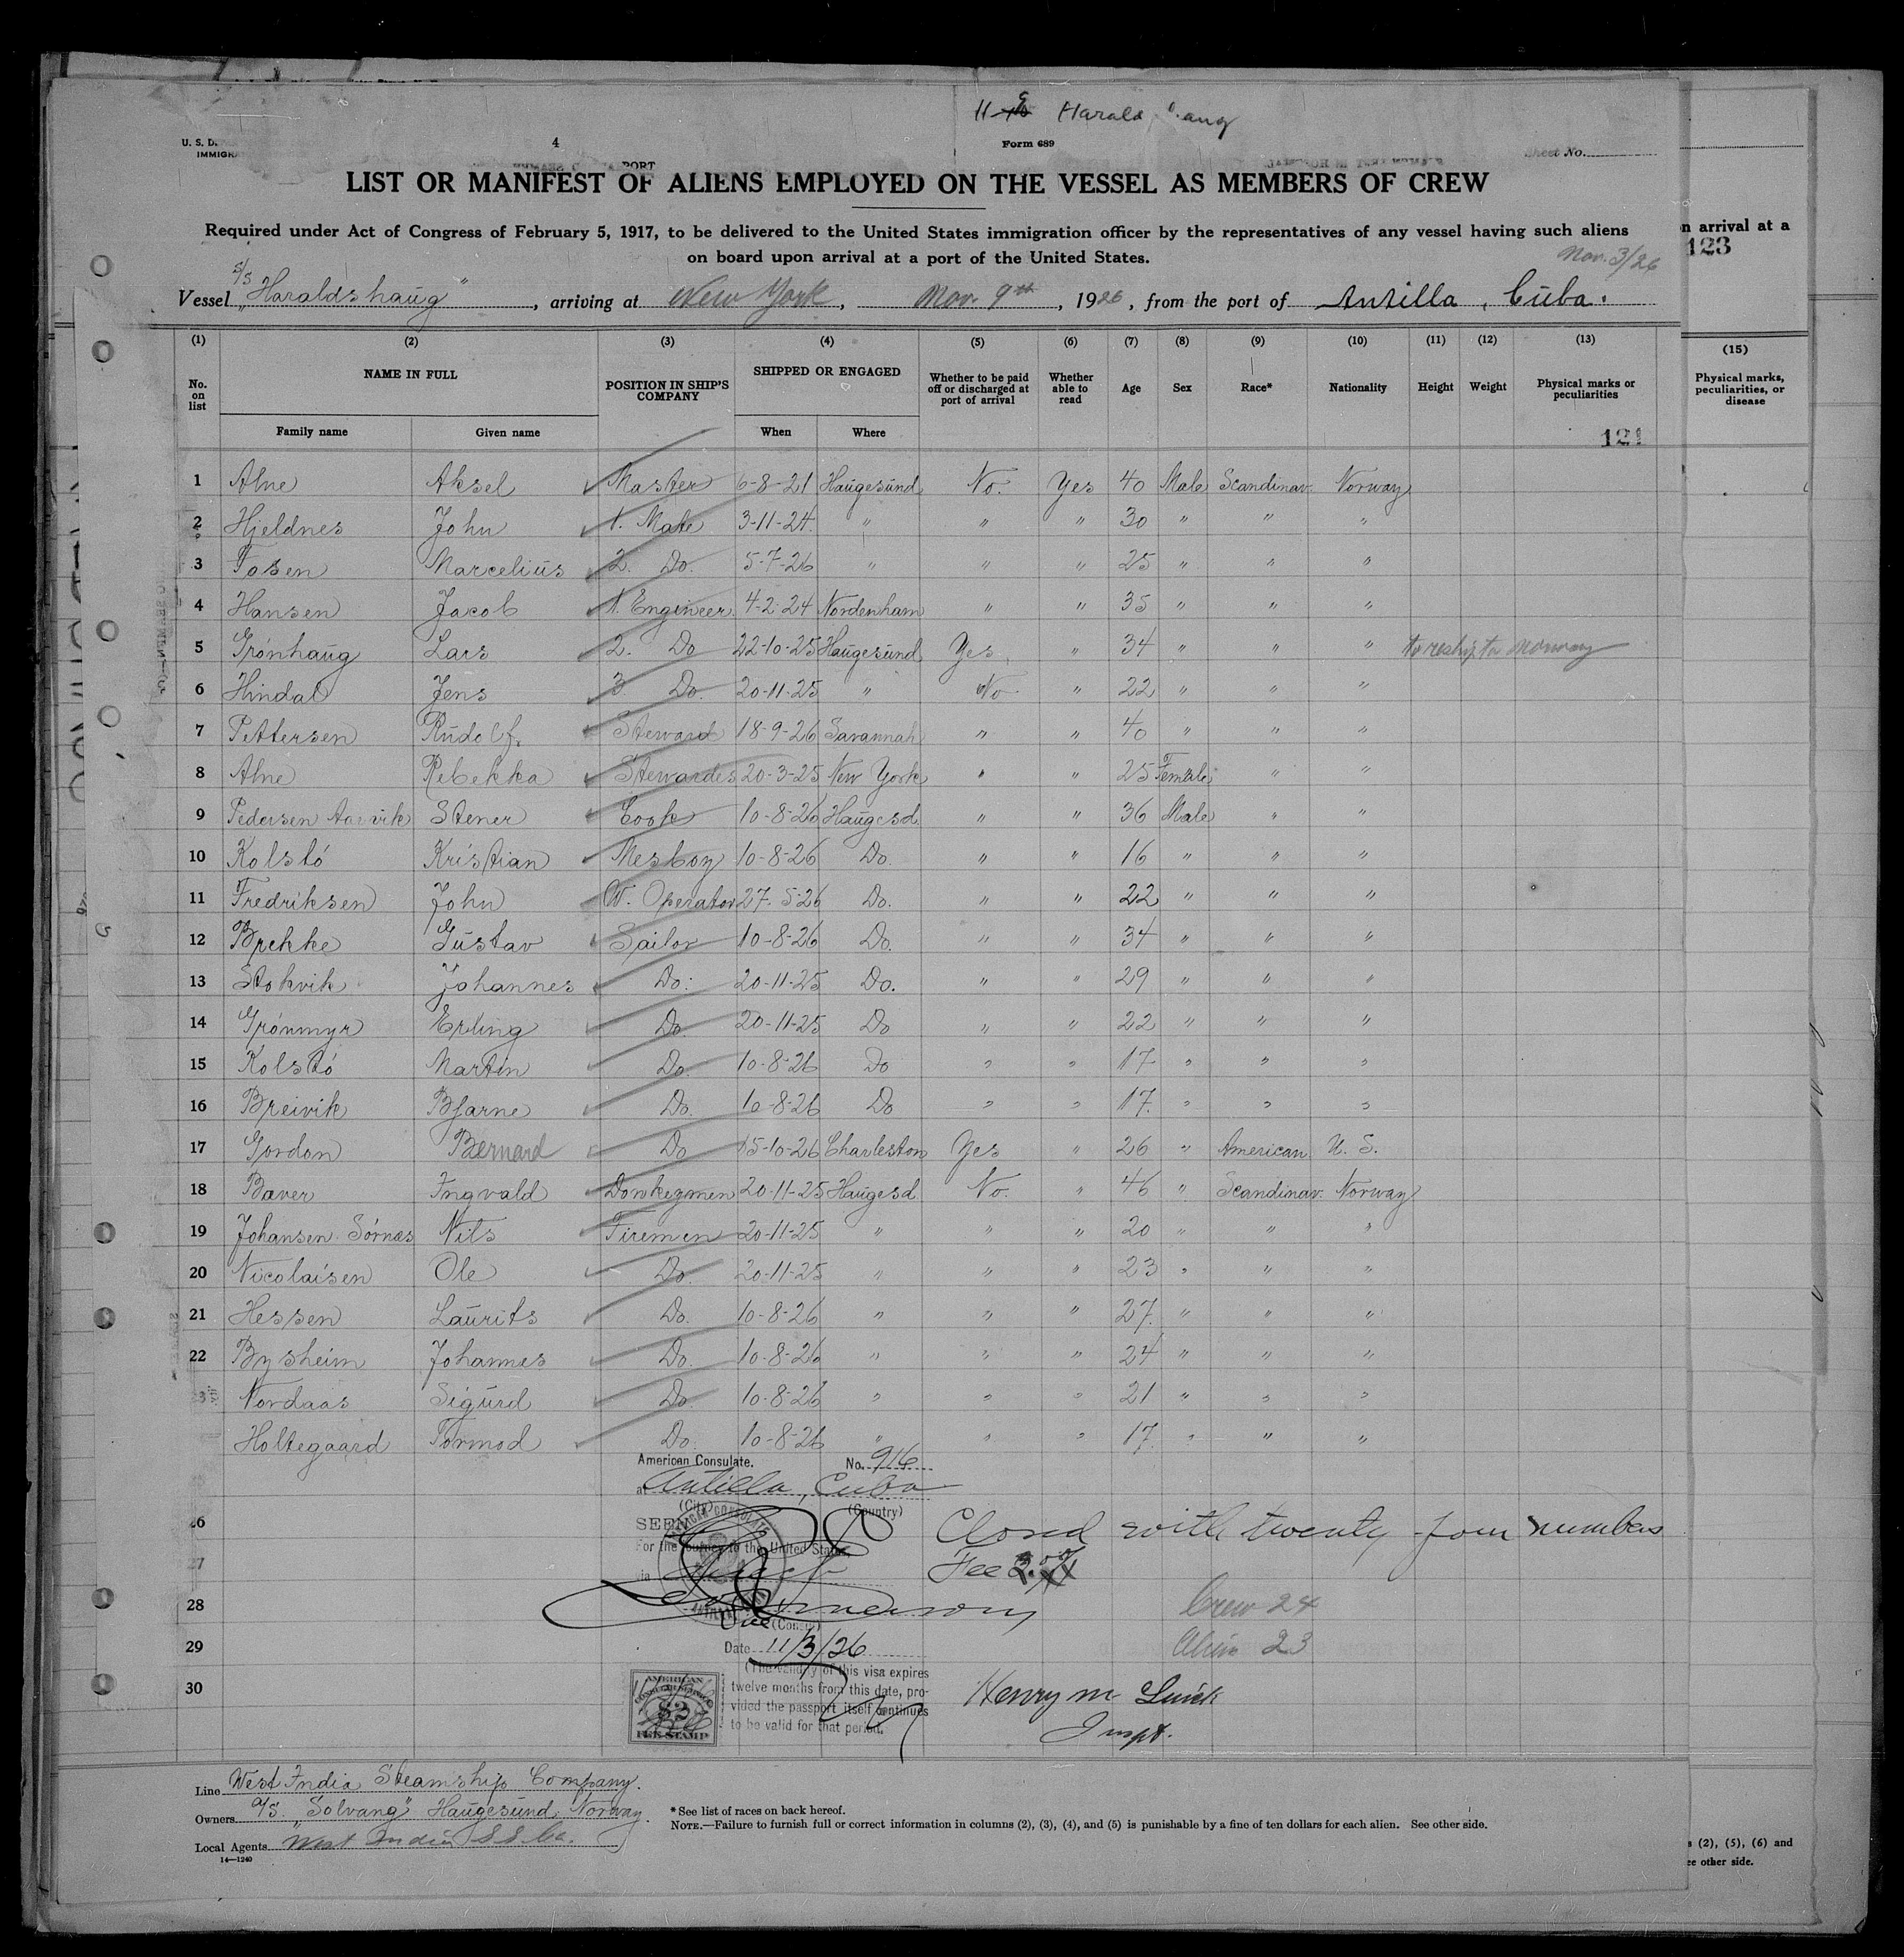 Harald
U. S. D.
IMMIGRA
4
Form 689
PORT
Sheet No.
LIST OR MANIFEST OF ALIENS EMPLOYED ON THE VESSEL AS MEMBERS OF CREW
Required under Act of Congress of February 5, 1917, to be delivered to the United States immigration officer by the representatives of any vessel having such aliens
on board upon arrival at a port of the United States.
n arrival at a
123
Nov. 3/26
Vessel S/S "Haraldshaug", arriving at New York, Nov. 9th, 1926, from the port of Antilla, Cuba.
(1) (2) (3) (4) (5) (6) (7) (8) (9) (10) (11) (12) (13) (15)
No. on list NAME IN FULL POSITION IN SHIP'S COMPANY SHIPPED OR ENGAGED Whether to be paid off or discharged at port of arrival Whether able to read Age Sex Race* Nationality Height Weight Physical marks or peculiarities Physical marks, peculiarities, or disease
Family name Given name When Where
121
1 Alne Aksel Master 6-8-21 Haugesund No. Yes 40 Male Scandinav. Norway
2 Hjeldnes John 1. Mate 3-11-24. " " " 30 " " "
3 Tosen Marcelius 2. Do. 5-7-26 " " " 25 " " "
4 Hansen Jacob 1. Engineer 4-2-24 Nordenham " " 35 " " "
5 Grónhaug Lars 2. Do 22-10-25 Haugesund Yes " 34 " " " to reship to Norway
6 Hindal Jens 3. Do. 20-11-25 " No " 22 " " "
7 Pettersen Rudolf. Steward 18-9-26 Savannah " " 40 " " "
8 Alne Rebekka Stewardes 20-3-25 New York " " 25 Female " "
9 Pedersen Aarvik Stener Cook 10-8-26 Haugesd. " " 36 Male " "
10 Kolstó Kristian Mesboy 10-8-26 Do. " " 16 " " "
11 Fredriksen John W. Operator 27.5-26 Do. " " 22 " " "
12 Brekke Gustav Sailor 10-8-26 Do. " " 34 " " "
13 Stokvik Johannes Do. 20-11-25 Do. " " 29 " " "
14 Grónmyr Erling Do. 20-11-25 Do " " 22 " " "
15 Kolstó Martin Do. 10-8-26 Do " " 17 " " "
16 Breivik Bjarne Do. 10-8-26 Do " " 17. " " "
17 Gordon Bernard Do 15-10-26 Charleston Yes " 26 " American U. S.
18 Bæver Ingvald Donkeymen 20-11-25 Haugesd No. " 46 " Scandinav. Norway
19 Johansen Sórnæs Nils Firemen 20-11-25 " " " 20 " " "
20 Nicolaisen Ole Do. 20-11-25 " " " 23 " " "
21 Hessen Laurits Do. 10-8-26 " " " 27. " " "
22 Bysheim Johannes Do. 10-8-26 " " " 24 " " "
23 Nordaas Sigurd Do. 10-8-26 " " " 21 " " "
Holtegaard Tormod Do. 10-8-26 " " " 17. " " "
American Consulate. No. 916
at Antilla, Cuba
(City) (Country)
26 SEEN Closed with twenty-four numbers
For the journey to the United States
27 via Fee
28 Crew 24
Vice (Consul)
29 Date 11/3/26 Alien 23
(The validity of this visa expires
twelve months from this date, pro-
vided the passport itself continues
to be valid for that period.
30 Henry M
Inspt.
AMERICAN
CONSULAR SERVICE
$2
FEE STAMP
Line West India Steamship Company.
Owners A/S. "Solvang" Haugesund, Norway.
Local Agents West India S S Co.
14—1240
*See list of races on back hereof.
NOTE.—Failure to furnish full or correct information in columns (2), (3), (4), and (5) is punishable by a fine of ten dollars for each alien. See other side.
s (2), (5), (6) and
ee other side.